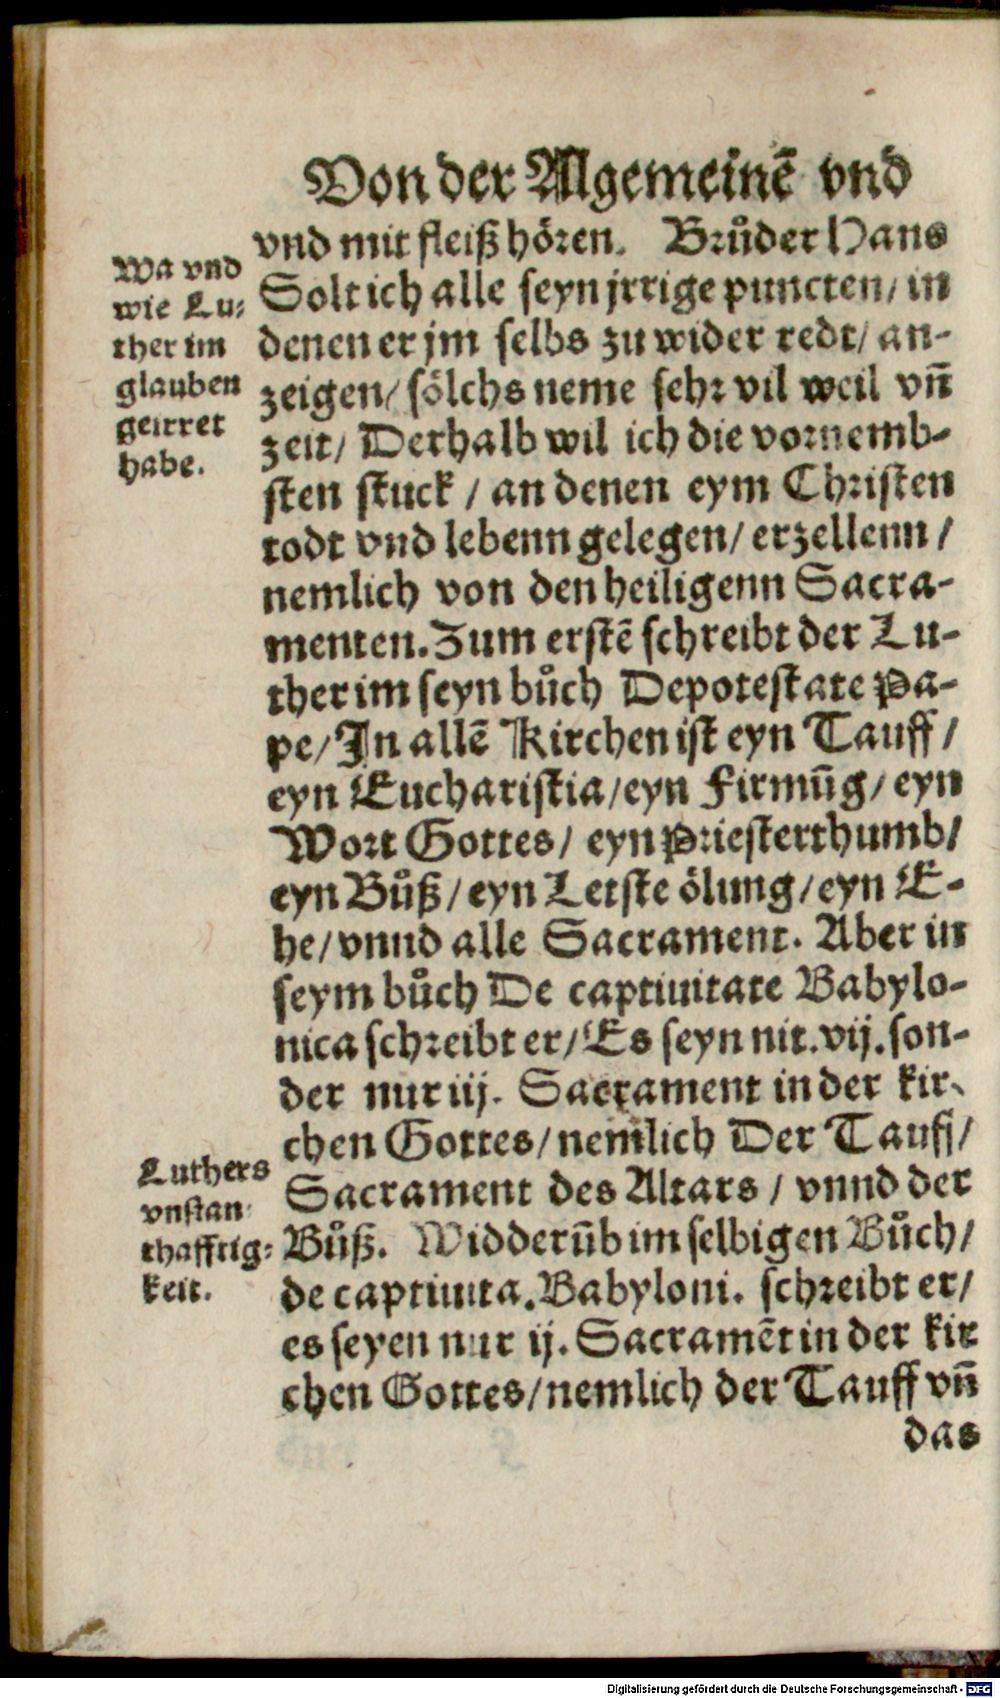 Von der Algemeinē vnd
vnd mit fleiß hören. Brůder Hans
Solt ich alle seyn jrrige puncten/ in
denen er jm selbs zu wider redt/ an-
zeigen/ sölchs neme sehr vil weil vn̄
zeit/ Derhalb wil ich die vornemb-
sten stuck / an denen eym Christen
todt vnd lebenn gelegen/ erzellenn /
nemlich von den heiligenn Sacra-
menten. Zum erstē schreibt der Lu-
ther im seyn bůch De potestate Pa-
pe/ In allē Kirchen ist eyn Tauff /
eyn Eucharistia/ eyn Firmūg/ eyn
Wort Gottes/ eyn Priesterthumb/
eyn Bůß/ eyn Letste ölung/ eyn E-
he/ vnnd alle Sacrament. Aber in
seym bůch De captiuitate Babylo-
nica schreibt er/ Es seyn nit. vij. son-
der nur iij. Sacrament in der kir-
chen Gottes/ nemlich Der Tauff/
Sacrament des Altars / vnnd der
Bůß. Widderūb im selbigen Bůch/
de captiuita. Babyloni. schreibt er/
es seyen nur ij. Sacramēt in der kir
chen Gottes/ nemlich der Tauff vn̄
das
Wa vnd
wie Lu-
ther im
glauben
geirret
habe.
Luthers
vnstan-
thafftig-
keit.
Digitalisierung gefördert durch die Deutsche Forschungsgemeinschaft - DFG